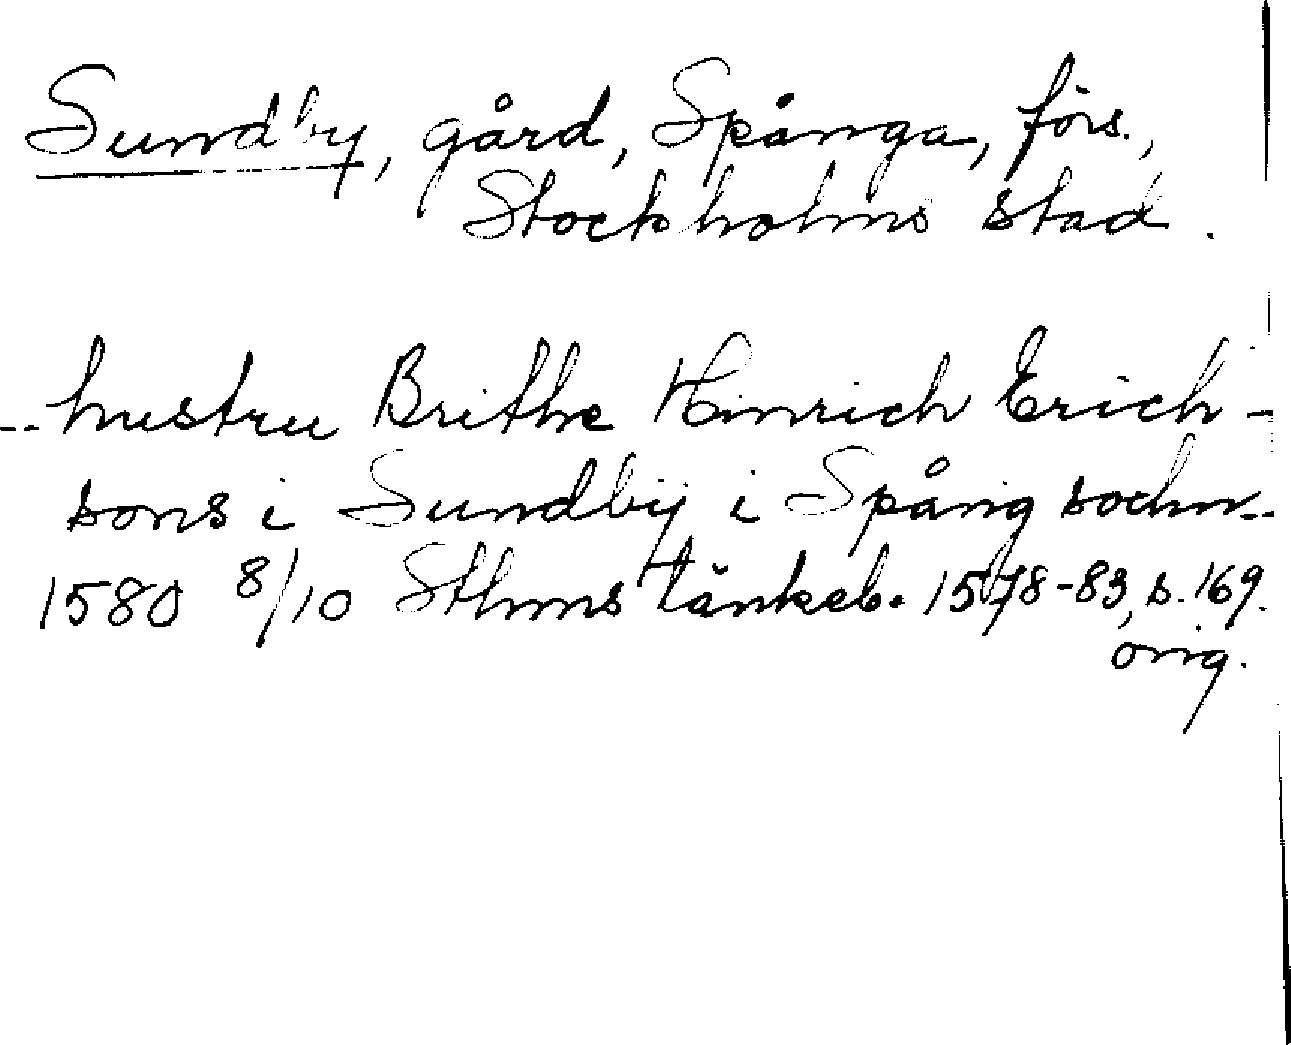 Sundby, gård, Spånga, förs.,
Stockholms stad.
-- hustru Brithe Hinrich Erich-
sons i Sundbÿ i Spång sochn--
1580 8/10 Sthms tänkeb. 1578-83, s. 169.
orig.